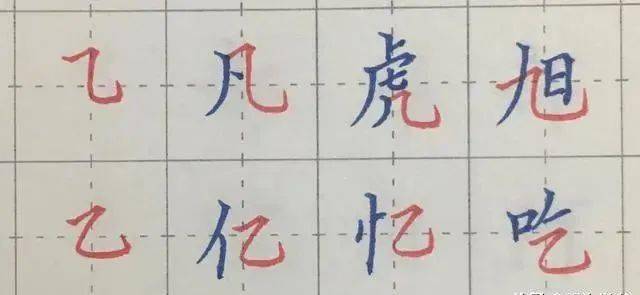 ⺄ 凡 虎 旭
乙 亿 忆 吃